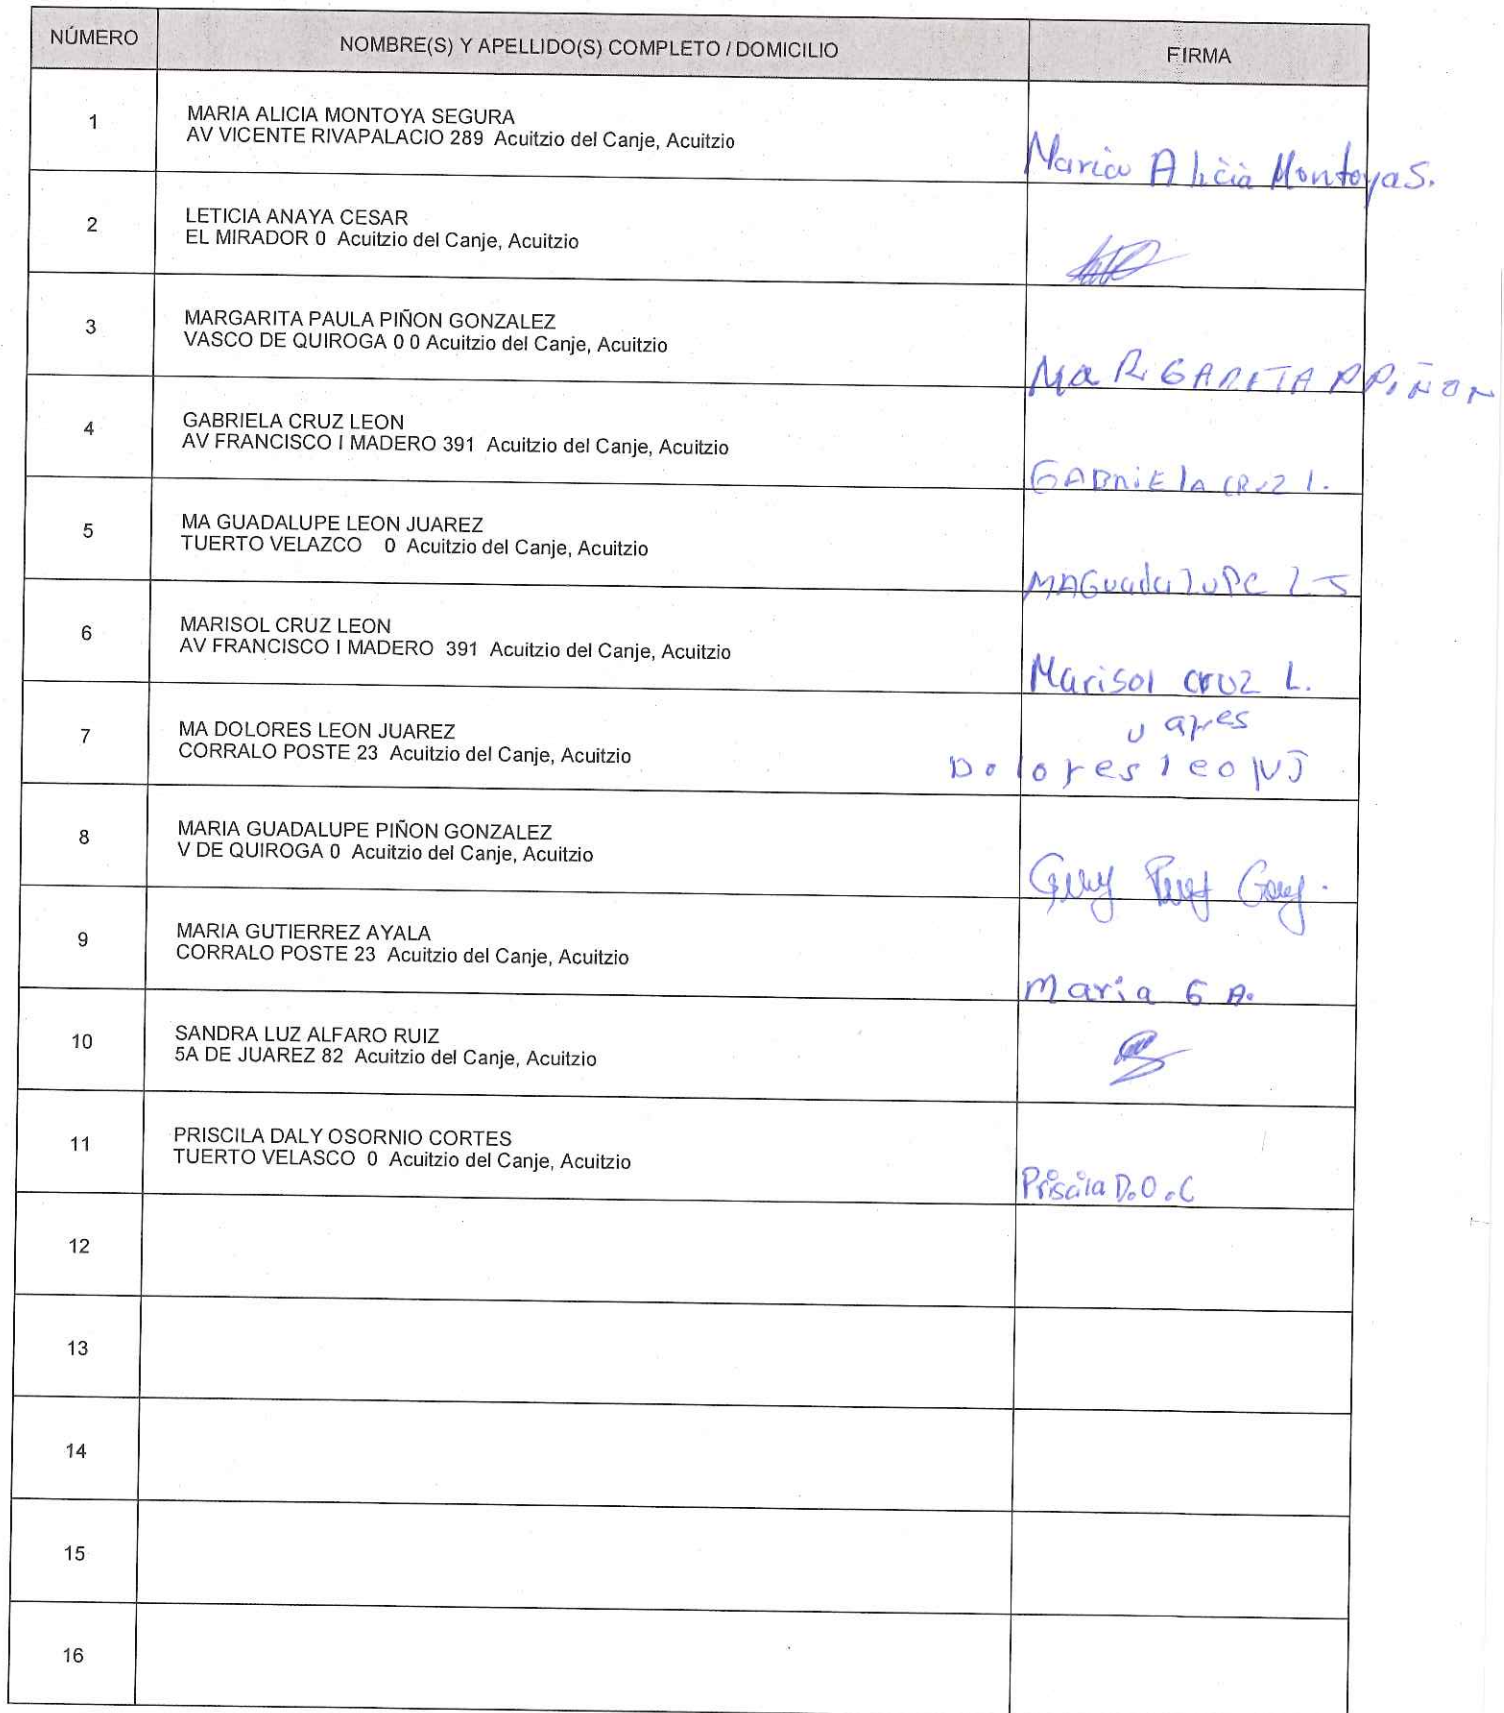 NÚMERO NOMBRE(S) Y APELLIDO(S) COMPLETO / DOMICILIO FIRMA
1 MARIA ALICIA MONTOYA SEGURA
AV VICENTE RIVAPALACIO 289 Acuitzio del Canje, Acuitzio
Maria Alicia Montoya S.
2 LETICIA ANAYA CESAR
EL MIRADOR 0 Acuitzio del Canje, Acuitzio
3 MARGARITA PAULA PIÑON GONZALEZ
VASCO DE QUIROGA 0 0 Acuitzio del Canje, Acuitzio
MaRGARITA P PiÑON
4 GABRIELA CRUZ LEON
AV FRANCISCO I MADERO 391 Acuitzio del Canje, Acuitzio
GABRiElA CRUZ l.
5 MA GUADALUPE LEON JUAREZ
TUERTO VELAZCO 0 Acuitzio del Canje, Acuitzio
MAGuadalupe L J
6 MARISOL CRUZ LEON
AV FRANCISCO I MADERO 391 Acuitzio del Canje, Acuitzio
Marisol cruz L.
7 MA DOLORES LEON JUAREZ
CORRALO POSTE 23 Acuitzio del Canje, Acuitzio
u ares
Dolores leoNJ
8 MARIA GUADALUPE PIÑON GONZALEZ
V DE QUIROGA 0 Acuitzio del Canje, Acuitzio
9 MARIA GUTIERREZ AYALA
CORRALO POSTE 23 Acuitzio del Canje, Acuitzio
Maria G A.
10 SANDRA LUZ ALFARO RUIZ
5A DE JUAREZ 82 Acuitzio del Canje, Acuitzio
11 PRISCILA DALY OSORNIO CORTES
TUERTO VELASCO 0 Acuitzio del Canje, Acuitzio
Priscila D.O.C
12
13
14
15
16